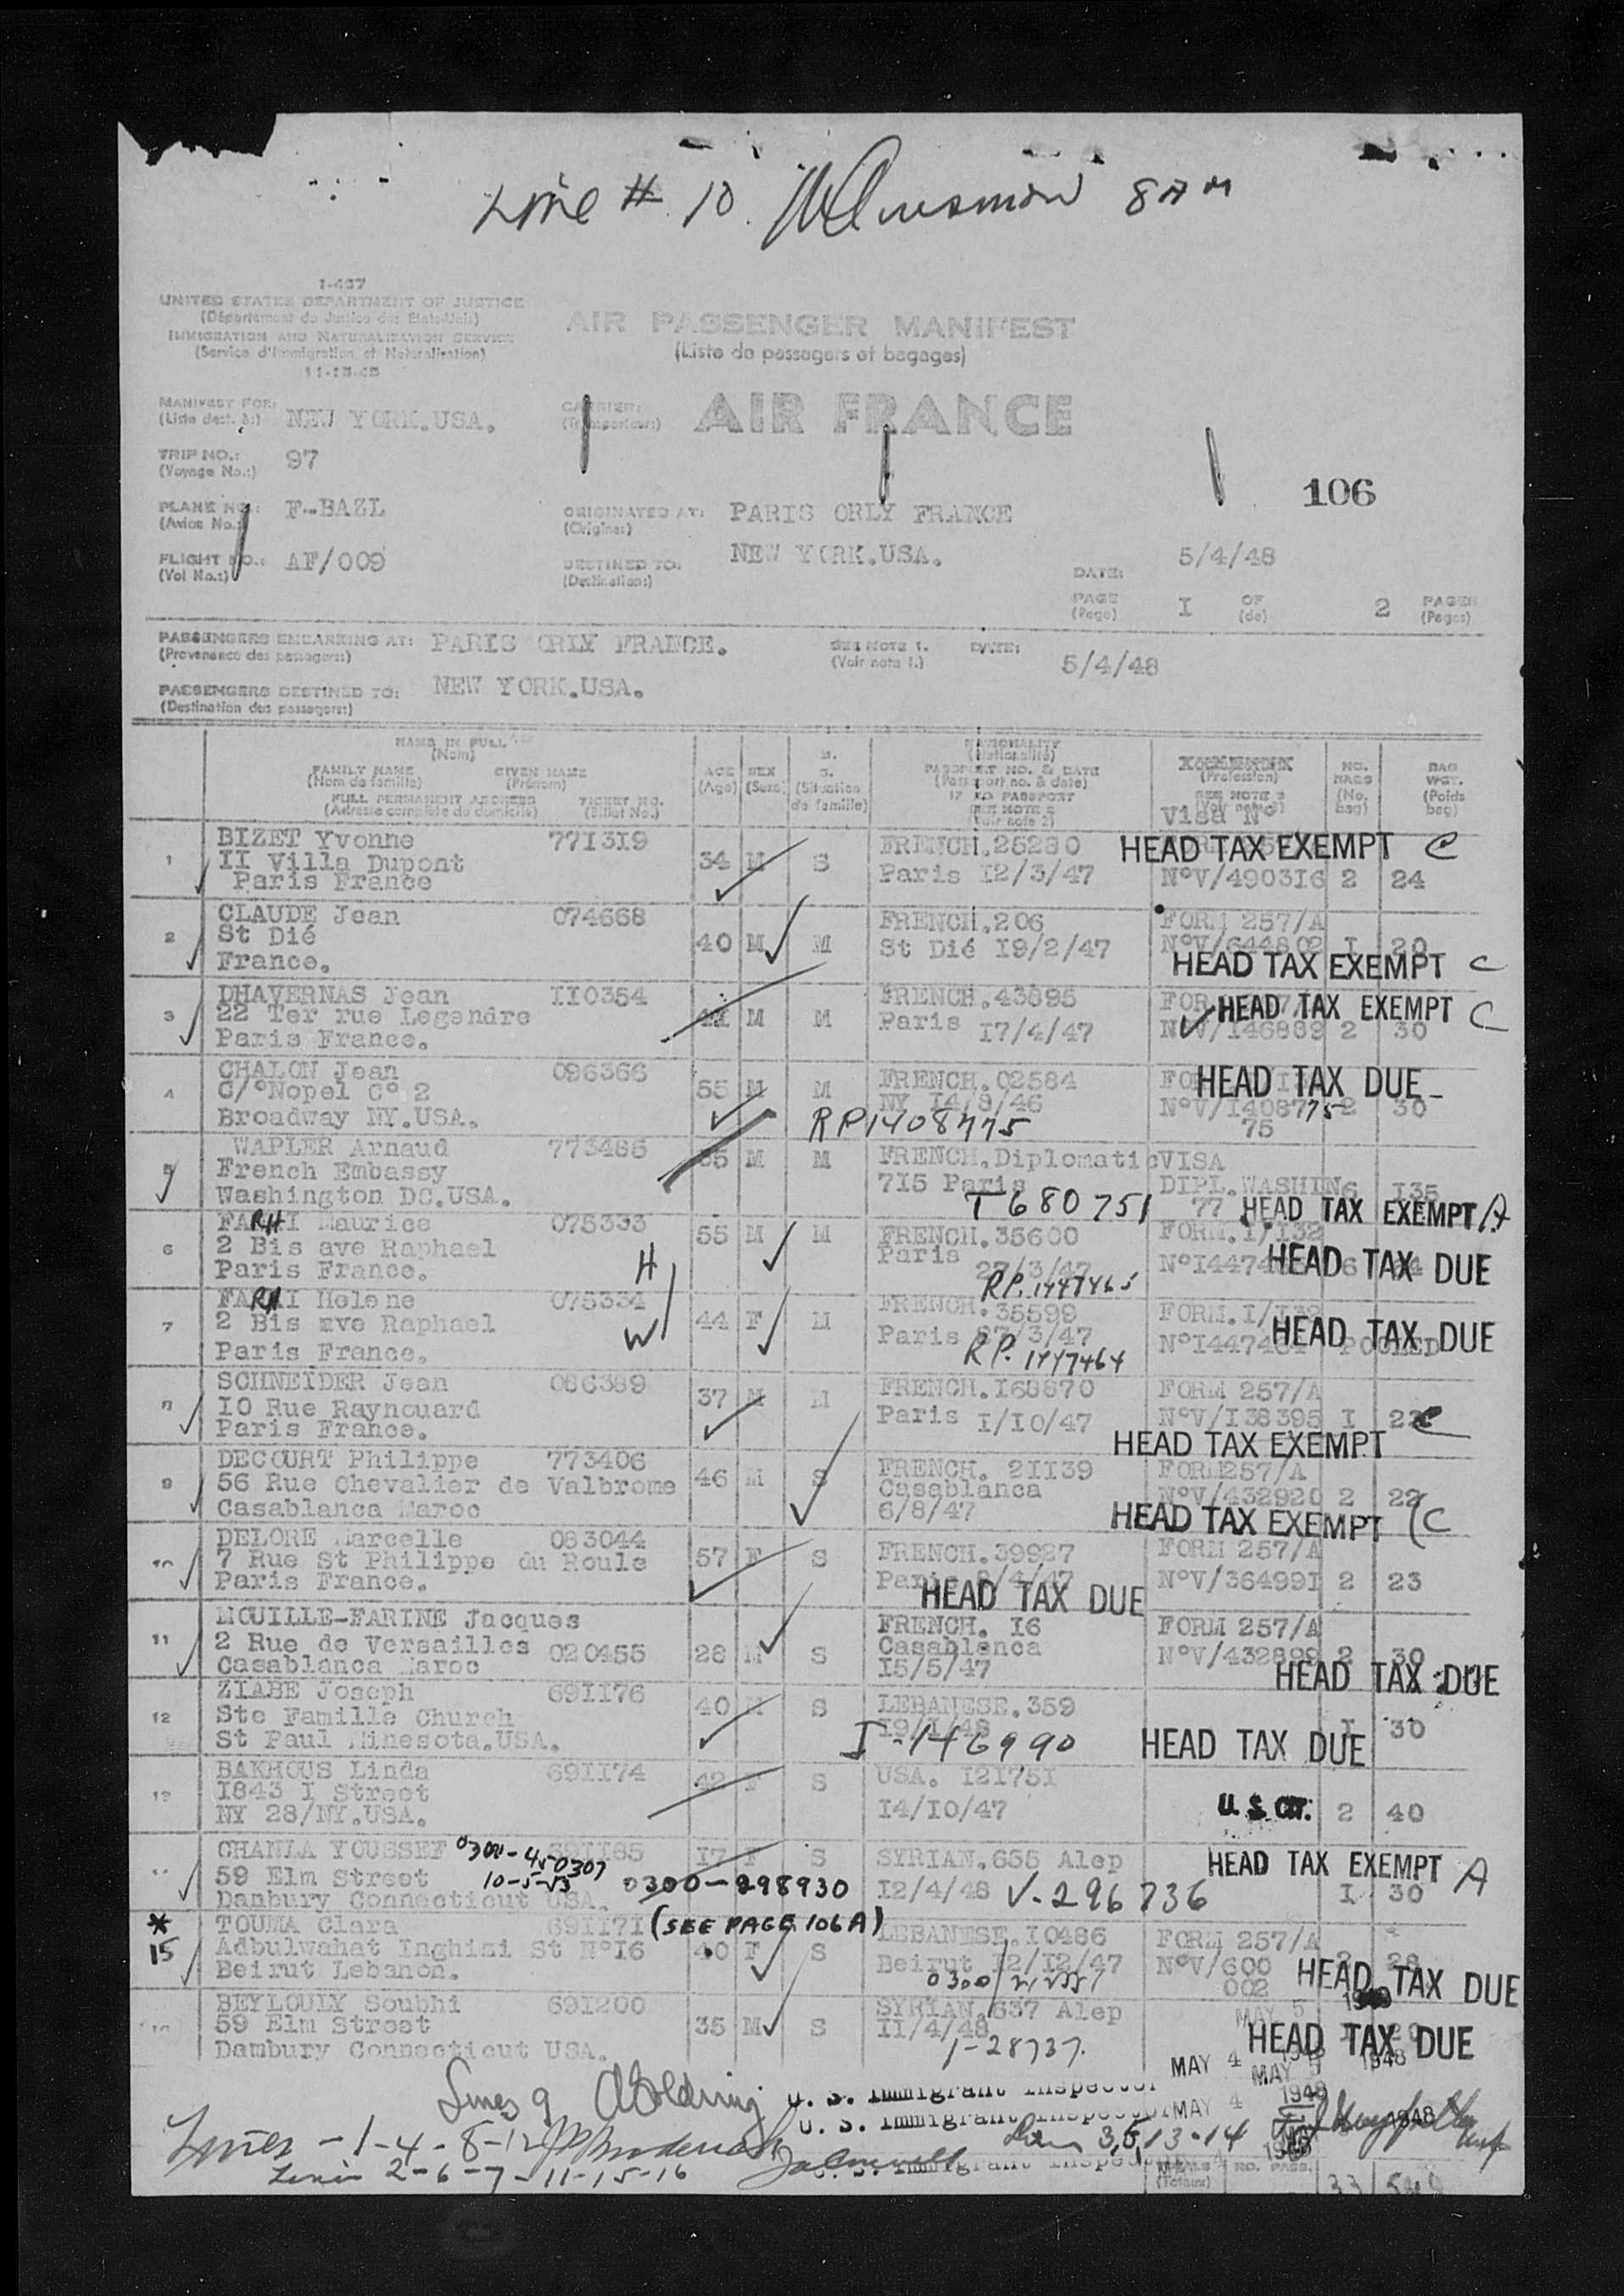 Line # 10. 8 AM
I-467
UNITED STATES DEPARTMENT OF JUSTICE
(Département de Justice des Etats-Unis)
IMMIGRATION AND NATURALIZATION SERVICE
(Service d'Immigration et Naturalisation)
11-15-45
AIR PASSENGER MANIFEST
(Liste de passagers et bagages)
MANIFEST FOR: NEW YORK.USA.
(Liste dest. à:)
CARRIER: AIR FRANCE
(Transporteur:)
TRIP NO.: 97
(Voyage No.:)
106
PLANE NO.: F-BAZL
(Avion No.:)
ORIGINATED AT: PARIS ORLY FRANCE
(Origine:)
FLIGHT NO.: AF/009
(Vol No.:)
DESTINED TO: NEW YORK.USA.
(Destination:)
DATE: 5/4/48
PAGE I OF 2 PAGES
(Page) (de) (Pages)
PASSENGERS EMBARKING AT: PARIS ORLY FRANCE.
(Provenance des passagers:)
SEE NOTE 1. DATE: 5/4/48
(Voir note 1.)
PASSENGERS DESTINED TO: NEW YORK.USA.
(Destination des passagers:)
NAME IN FULL
(Nom)
FAMILY NAME GIVEN NAME
(Nom de famille) (Prénom)
FULL PERMANENT ADDRESS TICKET NO.
(Adresse complète du domicile) (Billet No.)
AGE SEX
(Age) (Sexe)
M.
S.
(Situation
de famille)
NATIONALITY
(Nationalité)
PASSPORT NO. & DATE
(Passport no. & date)
IF NO PASSPORT
SEE NOTE 2
(Voir note 2)
(Profession)
SEE NOTE 3
(Voir note 3)
Visa N°
NO.
BAGS
(No.
bag)
BAG
WGT.
(Poids
bag)
1 BIZET Yvonne 771319 34 M S FRENCH.25280 HEAD TAX EXEMPT C
II Villa Dupont Paris I2/3/47 N°V/490316 2 24
Paris France
2 CLAUDE Jean 074668 40 M M FRENCH.206 FORM 257/A
St Dié St Dié I9/2/47 N°V/644802 I 20
France. HEAD TAX EXEMPT C
3 DHAVERNAS Jean II0354 M M FRENCH.43895 HEAD TAX EXEMPT C
22 Ter rue Legendre Paris I7/4/47 N°V/146889 2 30
Paris France.
4 CHALON Jean 096366 55 M M FRENCH.02584 HEAD TAX DUE
C/°Nopel C° 2 NY I4/8/46 N°V/I408775 2 30
Broadway NY.USA. RP1408775 75
5 WAPLER Arnaud 773485 M M FRENCH.Diplomatic VISA
French Embassy 715 Paris DIPL.WASHIN 6 I35
Washington DC.USA. T680751 77 HEAD TAX EXEMPT A
6 FARHI Maurice 075333 55 M M FRENCH.35600 FORM.I/I32
2 Bis ave Raphael Paris 27/3/47 HEAD TAX DUE
Paris France. H RP.1447465
7 FARHI Helene 075334 44 F M FRENCH.35599 FORM.I/I32
2 Bis ave Raphael W Paris 27/3/47 HEAD TAX DUE
Paris France. RP.1447464 POOLED
8 SCHNEIDER Jean 086389 37 M M FRENCH.I68870 FORM 257/A
I0 Rue Raynouard Paris I/I0/47 N°V/I38395 I 22 C
Paris France. HEAD TAX EXEMPT
9 DECOURT Philippe 773406 46 M S FRENCH. 2II39 FORM257/A
56 Rue Chevalier de Valbrome Casablanca N°V/432920 2 22
Casablanca Maroc 6/8/47 HEAD TAX EXEMPT C
10 DELORE Marcelle 083044 57 F S FRENCH.39927 FORM 257/A
7 Rue St Philippe du Roule Paris /4/47 N°V/364991 2 23
Paris France. HEAD TAX DUE
11 MOUILLE-FARINE Jacques FRENCH. I6 FORM 257/A
2 Rue de Versailles 020455 28 M S Casablanca N°V/432899 2 30
Casablanca Maroc I5/5/47 HEAD TAX DUE
12 ZIABE Joseph 691176 40 M S LEBANESE.359
Ste Famille Church I9/I/48 I 30
St Paul Minesota.USA. I-146990 HEAD TAX DUE
13 BAKHOUS Linda 691174 42 F S USA. I2I75I
I843 I Street I4/I0/47 U.S. CIT. 2 40
NY 28/NY.USA.
CHANIA YOUSSEF 0300-450307 I7 F S SYRIAN.655 Alep HEAD TAX EXEMPT A
59 Elm Street 10-5-53 0300-298930 I2/4/48 V-296736 I 30
Danbury Connecticut USA.
* TOUMA Clara 69II7I (SEE PAGE 106A) LEBANESE.I0486 FORM 257/A
15 Adbulwahat Inghisi St N°I6 40 F S Beirut I2/I2/47 N°V/600 2 28
Beirut Lebanon. 002 HEAD TAX DUE
BEYLOULY Soubhi 691200 35 M S SYRIAN.637 Alep MAY 5 1948
59 Elm Street II/4/48 HEAD TAX DUE
Dambury Connecticut USA. 1-28737.
MAY 4 1948 MAY 5 1948
Lines 9 AGoldring U. S. Immigrant Inspector
U. S. Immigrant Inspector MAY 4 1948
Lines -1-4-8-12 Lines 3,5,13-14
Lines 2-6-7-11-15-16 U. S. Immigrant Inspector
(Totaux) NO. PASS. 33